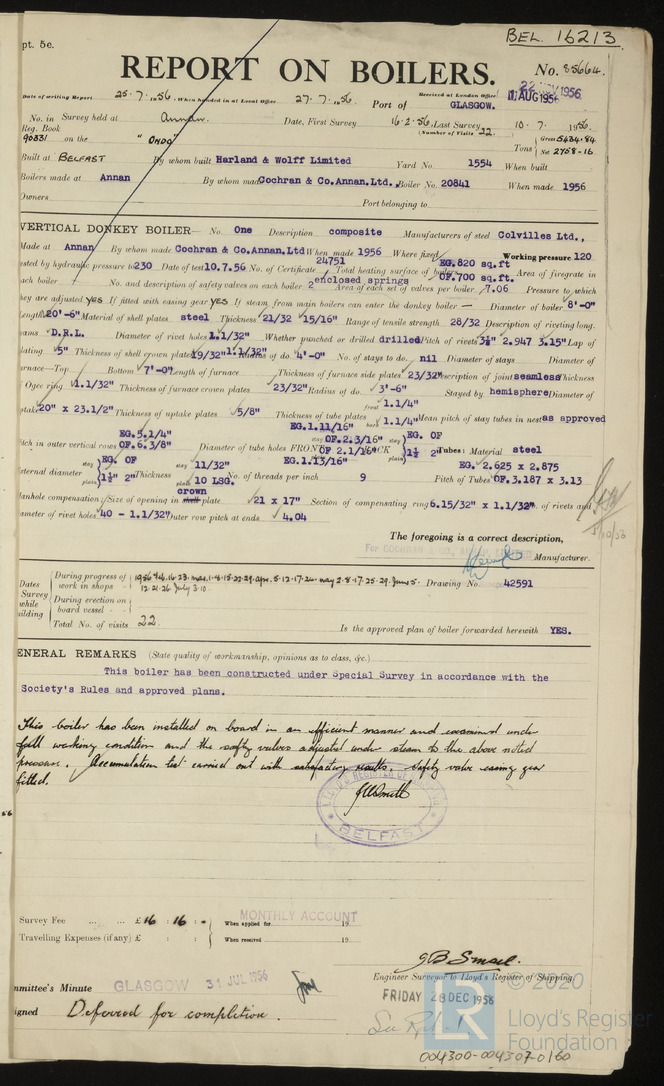 BEL. 16213
pt. 5c.
REPORT ON BOILERS.
No. 85664.
Date of writing Report 25.7.1956. When handed in at Local Office 27.7.1956. Port of GLASGOW.
Received at London Office
AUG 1956
1956
No. in Survey held at Annan. Date, First Survey 16.2.56. Last Survey 10.7.1956.
Reg. Book
(Number of Visits 22.
90331 on the "ONDO" Tons
Gross 5434.84
Net 2758.16
Built at BELFAST By whom built Harland & Wolff Limited Yard No. 1554 When built
Boilers made at Annan By whom made Cochran & Co.Annan.Ltd., Boiler No. 20841 When made 1956
Owners Port belonging to
VERTICAL DONKEY BOILER— No. One Description composite Manufacturers of steel Colvilles Ltd.,
Made at Annan By whom made Cochran & Co.Annan.Ltd When made 1956 Where fixed Working pressure 120
ested by hydraulic pressure to 230 Date of test 10.7.56 No. of Certificate 24751 Total heating surface of boilers EG.820 sq.ft OF.700 sq.ft. Area of firegrate in
ach boiler No. and description of safety valves on each boiler 2 enclosed springs Area of each set of valves per boiler 7.06 Pressure to which
hey are adjusted yes If fitted with easing gear YES If steam from main boilers can enter the donkey boiler — Diameter of boiler 8'-0"
Length 20'-6" Material of shell plates steel Thickness 21/32 15/16" Range of tensile strength 28/32 Description of riveting long.
ams D.R.L. Diameter of rivet holes 1.1/32" Whether punched or drilled drilled Pitch of rivets 3½" 2.947 3.15" Lap of
lating 5" Thickness of shell crown plates 19/32" 1.1/32" Radius of do. 4'-0" No. of stays to do. nil Diameter of stays Diameter of
urnace—Top Bottom 7'-0" Length of furnace Thickness of furnace side plates 23/32" Description of joint seamless Thickness
Ogee ring 1.1/32" Thickness of furnace crown plates 23/32" Radius of do. 3'-6" Stayed by hemisphere Diameter of
uptake 20" x 23.1/2" Thickness of uptake plates 5/8" Thickness of tube plates front 1.1/4" back 1.1/4" Mean pitch of stay tubes in nest as approved
itch in outer vertical rows EG.5.1/4" OF.6.3/8" Diameter of tube holes FRONT EG.1.11/16" stay OF.2.3/16" plain EG.1.13/16" OF 2.1/16" BACK stay EG. OF plain 1½" 2" Tubes: Material steel
xternal diameter stay EG. OF plain 1½" 2" Thickness stay 11/32" plain 10 LSG. No. of threads per inch 9 Pitch of Tubes EG. 2.625 x 2.875 OF.3.187 x 3.13
Manhole compensation: Size of opening in shell crown plate 21 x 17" Section of compensating ring 6.15/32" x 1.1/32" No. of rivets and
iameter of rivet holes 40 - 1.1/32" Outer row pitch at ends 4.04
The foregoing is a correct description,
For COCHRAN & CO., ANNAN, LIMITED
Manufacturer.
Dates During progress of 1956 Feb. 16.23. mar. 1.8.15.22.29. apr. 5.12.17.26. may 2.8.17.25.29. June 5. Drawing No. 42591
Survey work in shops - 12.21.26. July 3.10.
while During erection on
uilding board vessel - -
Total No. of visits 22. Is the approved plan of boiler forwarded herewith YES.
ENERAL REMARKS (State quality of workmanship, opinions as to class, &c.)
This boiler has been constructed under Special Survey in accordance with the
Society's Rules and approved plans.
This boiler has been installed on board in an efficient manner and examined under
full working condition and the safety valves adjusted under steam to the above noted
pressure. Accumulation test carried out with satisfactory results. Safety valve easing gear
fitted.
LLOYD'S REGISTER OF SHIPPING
BELFAST
Survey Fee ... ... £16 : 16 : - When applied for 19
MONTHLY ACCOUNT
Travelling Expenses (if any) £ : : When received 19
Engineer Surveyor to Lloyd's Register of Shipping.
mmittee's Minute GLASGOW 31 JUL 1956
FRIDAY 28 DEC 1956
igned Deferred for completion.
© 2020
LR
Lloyd's Register
Foundation
004300-004307-0160